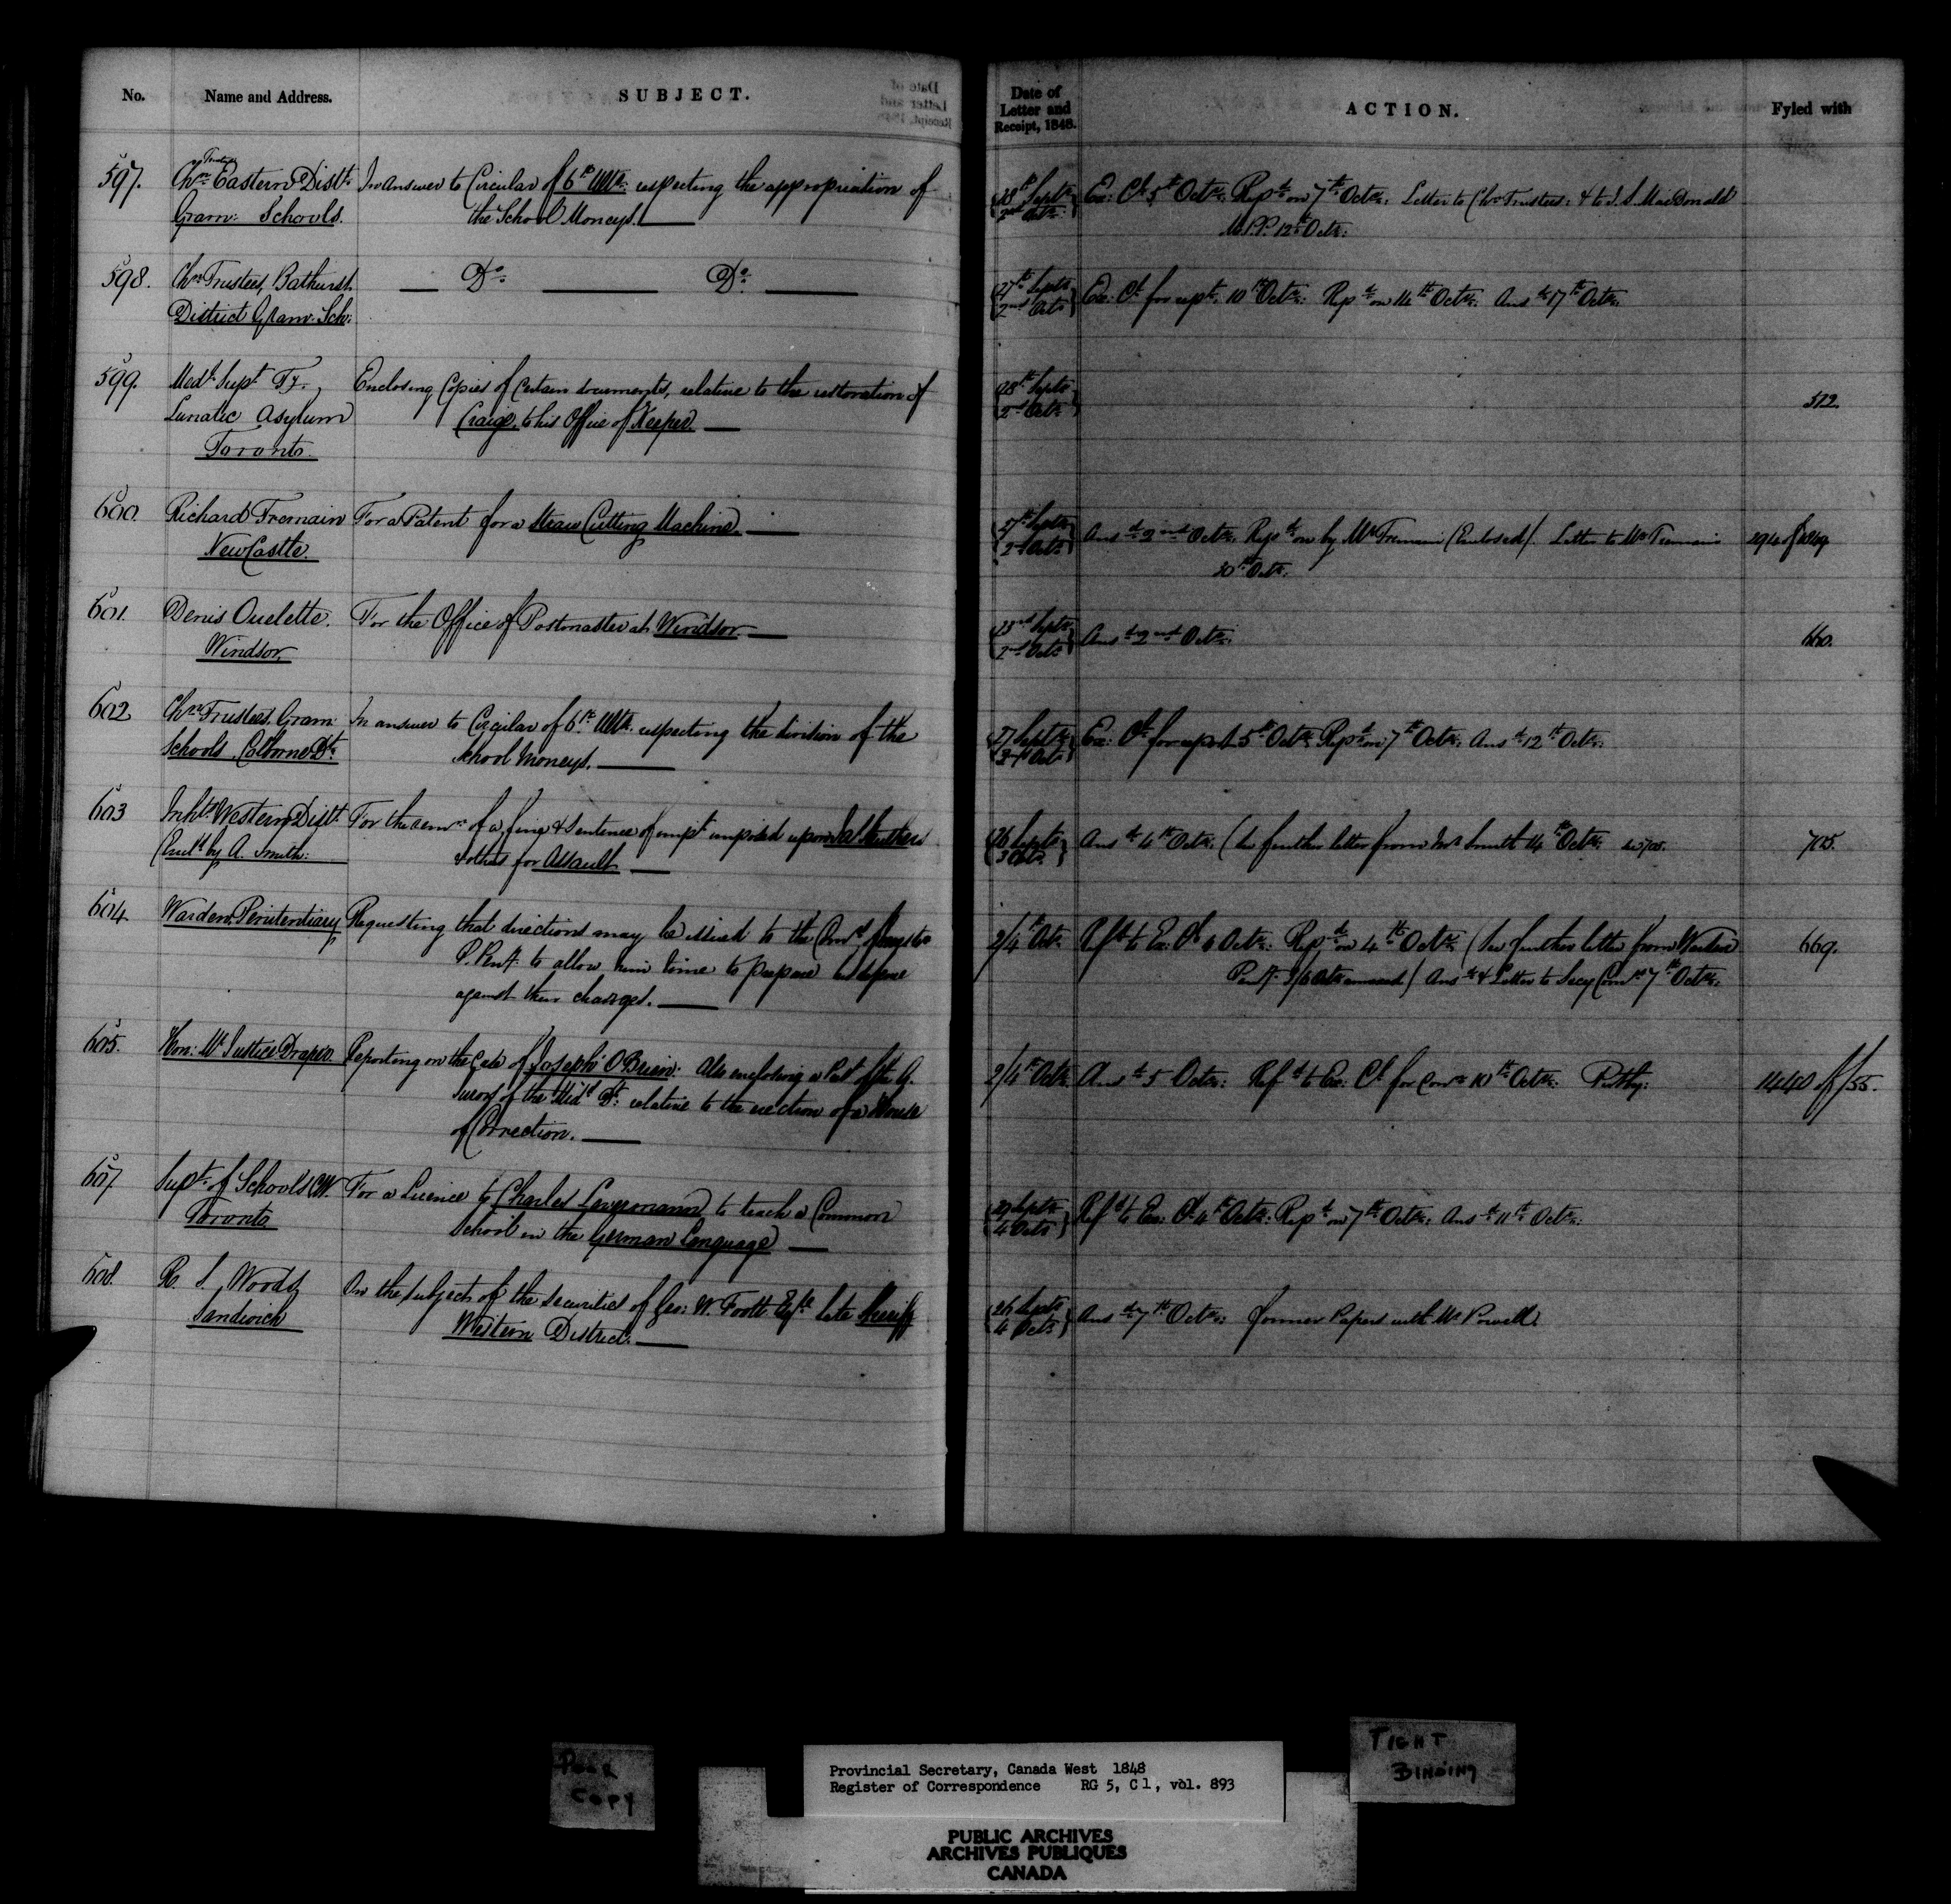 No.
Name and Address.
SUBJECT.
597.
Trustees
Chn. Eastern Distt.
Gram: Schools.
In answer to Circular of 6th Ulto. respecting the appropriation of
the School Moneys.
598.
Chn. Trustees, Bathurst
District Gram: Sch:
Do. Do.
599.
Medl. Supt. Ty.
Lunatic Asylum
Toronto.
Enclosing Copies of Certain documents, relative to the restoration of
Craig, to his Office of Keeper.
600.
Richard Tremain
NewCastle.
For a Patent for a Straw Cutting Machine.
601.
Denis Ouelette.
Windsor.
For the Office of Postmaster at Windsor.
602
Chn. Trustees, Gram:
Schools, Colborne Dt.
In answer to Circular of 6th Ulto. respecting the division of the
School Moneys.
603
Inhts. Western Distt.
(Encld. by A. Smith:
For the remn. of a fine & Sentence of impt. imposed upon
& others for Assault
604.
Warden, Penitentiary
Requesting that directions may be issued to the Comrs.
P. Peny. to allow him time to prepare his defence
against their charges.
605.
Hon: Mr. Justice Draper.
Reporting on the Case of Joseph O'Brien: Also enclosing a Pet. of the G.
Jurors of the Midd. Dt. relative to the erection of a House
of Correction.
607.
Supt. of Schools C.W.
Toronto
For a Licence to Charles to teach a Common
School in the German Language)
608.
R. S. Woods,
Sandwich
On the subject of the securities of Geo: W. Foott Esqre. late Sheriff
Western District.
Date of
Letter and
Receipt, 1848.
ACTION.
Fyled with
28th Septr.
2nd Octr.
Ex: Cl. 5th Octr: Repd. on 7th Octr: Letter to Chn. Trustees: & to J. S. MacDonald
M.P.P. 12th Octr:
27th Septr.
2nd Octr.
Ex: Cl. for rept. 10th Octr: Repd. on 14th Octr: Ansd. 17th Octr:
28th Septr.
2nd Octr.
512.
27th Septr.
2nd Octr.
Ansd. 2nd Octr. Repd. on by Mr. Tremain (Enclosed). Letter to Mr. Tremain
30th Octr.
294 of 1849
23rd Septr.
2nd Octr.
Ansd. 2nd Octr:
660.
27 Septr.
3rd Octr.
Ex: Cl. for report 5th Octr. Repd. on 7th Octr: Ansd. 12th Octr:
26 Septr.
3 Octr.
Ansd. 4th Octr: (See further letter from Mr. Smith 14th Octr: No 705.
705.
2/4th Octr.
Refd. to Ex: Cl. 4 Octr: Repd. on 4th Octr: (See further letter from Warden
Peny. 3/6 Octr. annexed) Ansd. & Letter to Secy. Comrs. 7th Octr:
669.
2/4th Octr.
Ansd. 5 Octr: Refd. to Ex: Cl. for Conn. 10th Octr:
1440 of /55.
29 Septr.
4 Octr.
Refd. to Ex: Cl. 4th Octr: Repd. on 7th Octr: Ansd. 11th Octr:
26 Septr.
4 Octr.
Ansd. 7th Octr: former Papers with Mr. Powell.
POOR
COPY
Provincial Secretary, Canada West 1848
Register of Correspondence RG 5, C 1, vol. 893
TIGHT
BINDING
PUBLIC ARCHIVES
ARCHIVES PUBLIQUES
CANADA